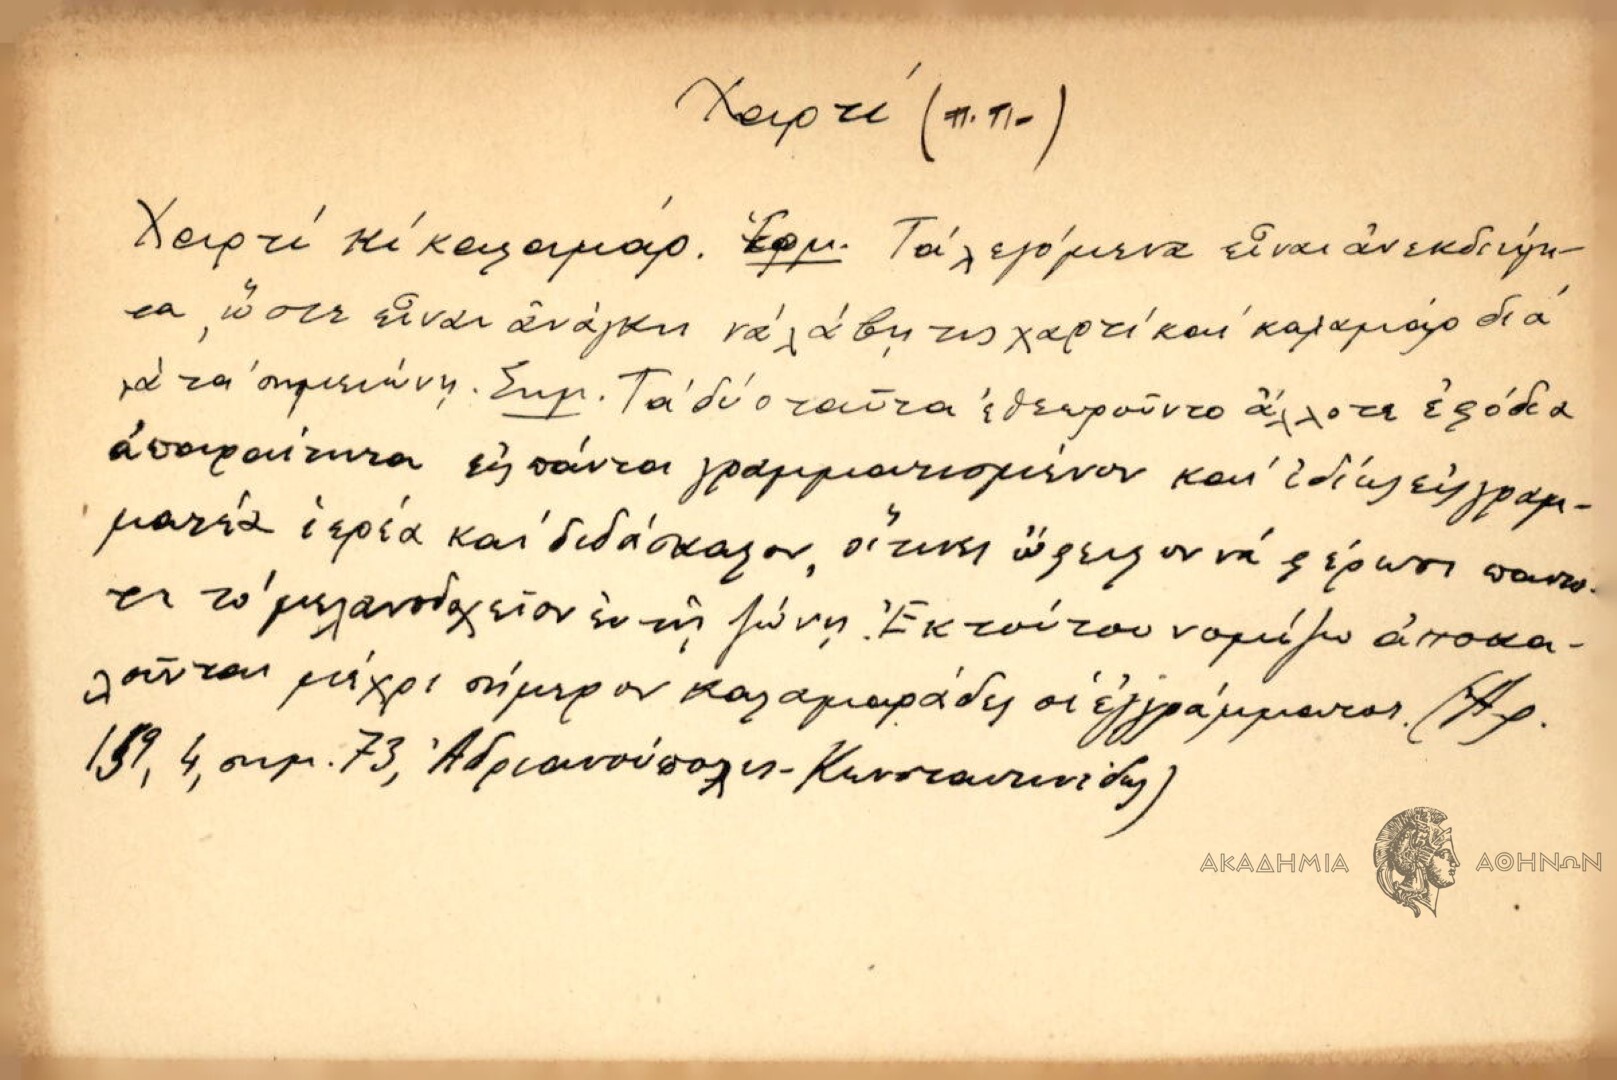 Χαρτί (π.π.)
Χαρτί κί καλαμάρ. Ἑρμ. Τά λεγόμενα εἶναι ἀνεκδιήγη-
τα, ὥστε εἶναι ἀνάγκη νά λάβῃ τις χαρτί καί καλαμάρ διά
νά τά σημειώνῃ. Σημ. Τά δύο ταῦτα ἐθεωροῦντο ἄλλοτε ἐφόδια
ἀπαραίτητα εἰς πάντα γραμματισμένον καί ἰδίως εἰς γραμ-
ματέα ἱερέα καί διδάσκαλον, οἵτινες ὤφειλον νά φέρωσι πάντο-
τε τό μελανοδοχεῖον ἐν τῇ ζώνῃ. Ἐκ τούτου νομίζω ἀποκα-
λοῦνται μέχρι σήμερον καλαμαράδες οἱ ἐγγράμματοι. (Ἀρ.
159, 4, σημ. 73, Ἀδριανούπολις - Κωνσταντινίδης)
ΑΚΑΔΗΜΙΑ ΑΘΗΝΩΝ